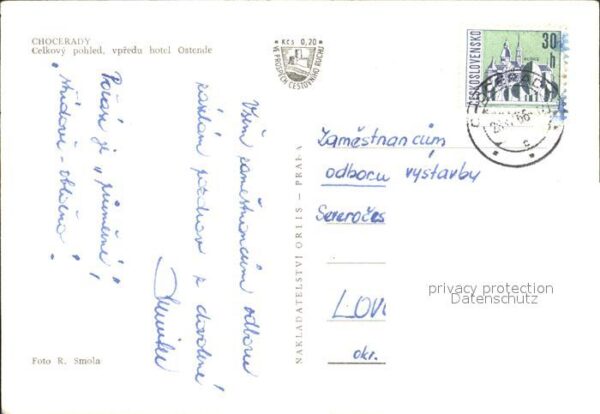 CHOCERADY
Celkový pohled, vpředu hotel Ostende
Kčs 0,20
VE PROSPĚCH CESTOVNÍHO RUCHU
ČESKOSLOVENSKO
30
h
CHOCERADY
66
c
Všem zaměstnancům odboru
zasílám pozdrav z dovolené
Počasí je „průměrné“
střídavě – oblačno!
NAKLADATELSTVÍ ORBIS – PRAHA
Zaměstnancům
odboru výstavby
Severočes
LOV
okr.
privacy protection
Datenschutz
Foto R. Smola